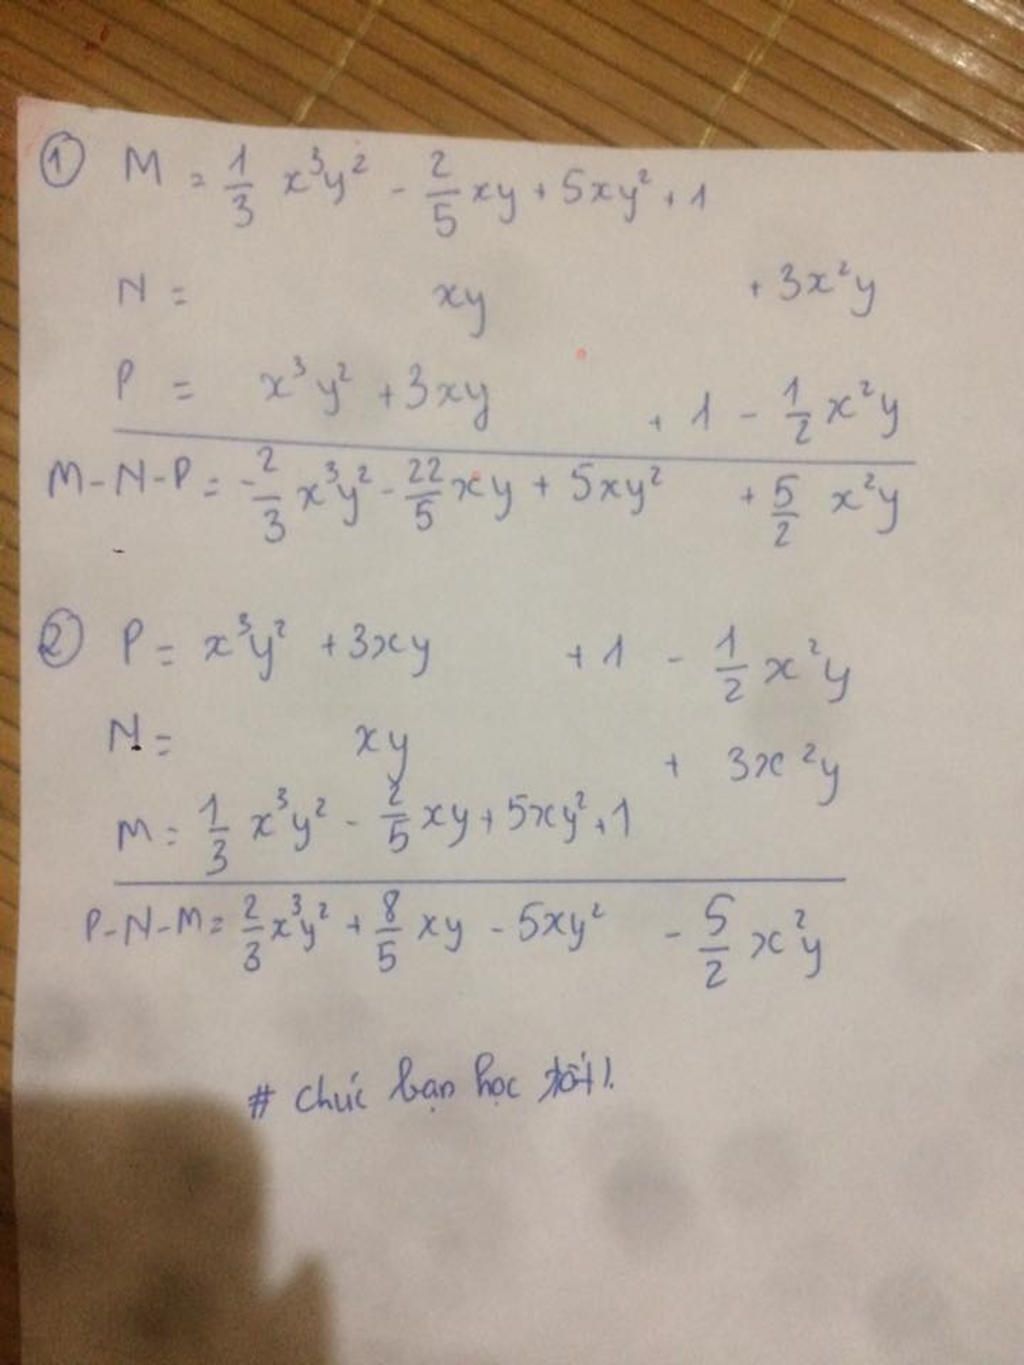 ① M = 1/3 x³y² - 2/5 xy + 5xy² + 1
N = xy + 3x²y
P = x³y² + 3xy + 1 - 1/2 x²y
M-N-P = -2/3 x³y² - 22/5 xy + 5xy² + 5/2 x²y
② P = x³y² + 3xy + 1 - 1/2 x²y
N = xy + 3x²y
M = 1/3 x³y² - 2/5 xy + 5xy² + 1
P-N-M = 2/3 x³y² + 8/5 xy - 5xy² - 5/2 x²y
# chúc bạn học tốt!